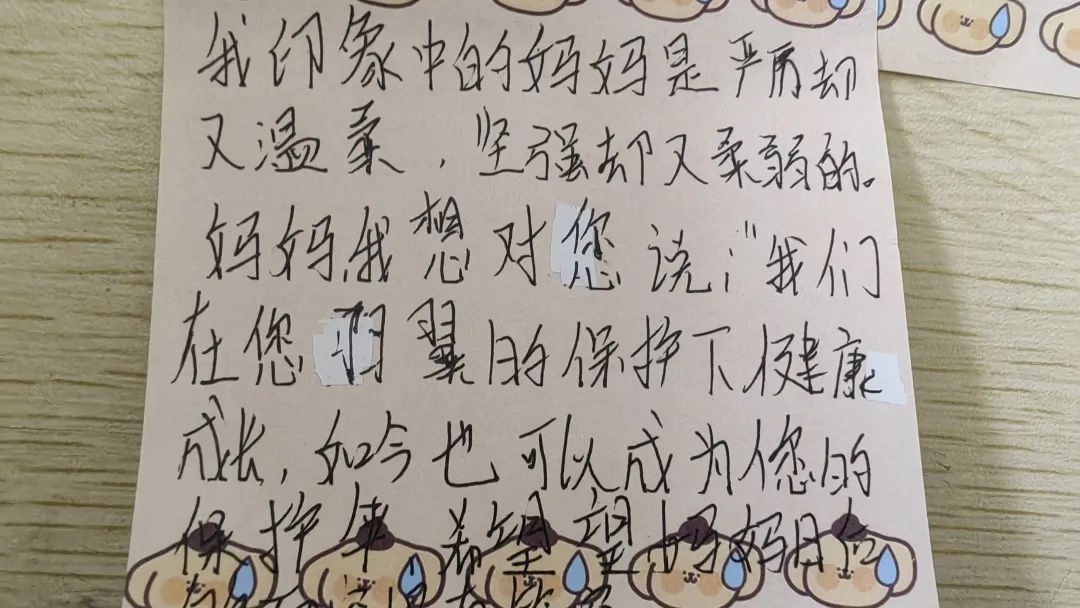 我印象中的妈妈是严厉却
又温柔，坚强却又柔弱的。
妈妈，我想对您说：“我们
在您羽翼的保护下健康
成长，如今也可以成为您的
保护伞，希望望妈妈日后